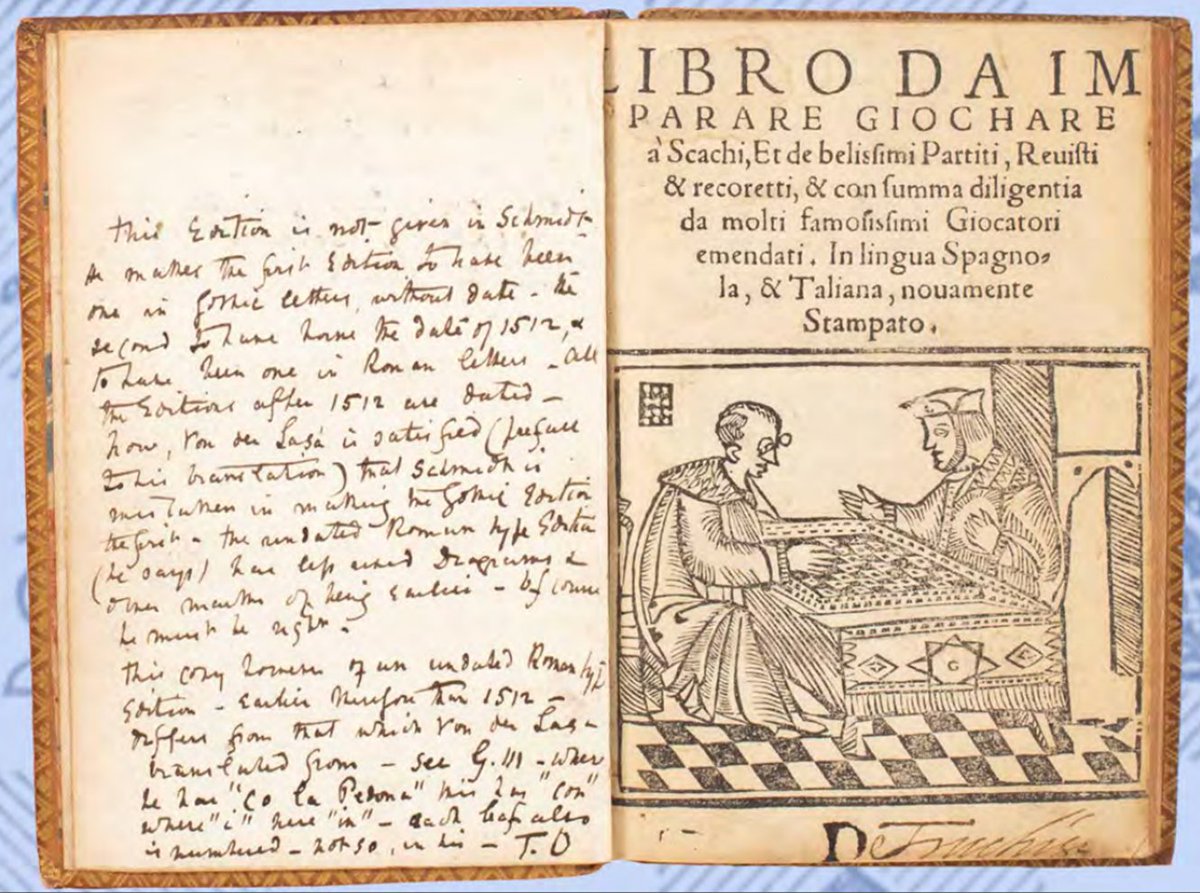 this Edition is not given in Schmidt-
he makes the first Edition to have been
one in Gothic letters, without date - the
second to have borne the date of 1512, &
to have been one in Roman letters - all
the Editions after 1512 are dated -
how, Von der Lasa is satisfied (preface
to his translation) that Schmidt is
mistaken in making the Gothic Edition
the first - the undated Roman type Edition
(he says) has less Diagrams &
other marks of being earlier - Of course
he must be right -
This copy however of an undated Roman type
Edition - Earlier therefore than 1512 -
differs from that which Von der Lasa
translated from - see G.III - where
he has "Co la Pedona" this has "Con"
where "i" here "in" - each leaf also
is numbered - not so, in his - T. D
LIBRO DA IM
PARARE GIOCHARE
à Scachi, Et de belissimi Partiti, Reuisti
& recoretti, & con summa diligentia
da molti famosissimi Giocatori
emendati. In lingua Spagno-
la, & Taliana, nouamente
Stampato.
G